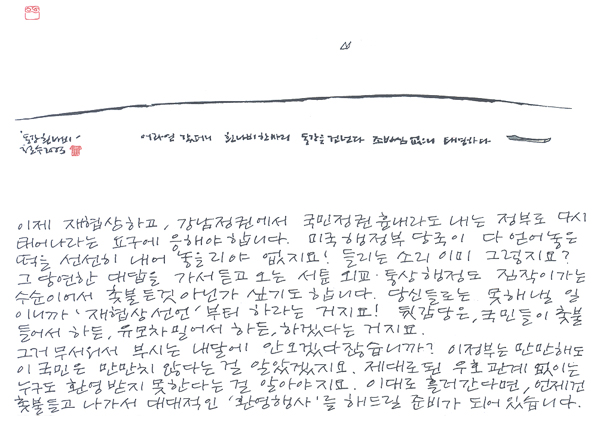 '동강 흰나비'
철수 2003
어라연 갔더니 흰나비 한마리 동강을 건넌다 조바심 없으니 태평하다
이제 재협상하고, 강남정권에서 국민정권 흉내라도 내는 정부로 다시
태어나라는 요구에 응해야 합니다. 미국 행정부 당국이 다 얻어놓은
떡을 선선히 내어 놓을리야 없지요! 들리는 소리 이미 그렇지요?
그 당연한 대답을 가서 듣고 오는 서툰 외교·통상 행정도 짐작이 가는
수순이어서 촛불 든 것 아닌가 싶기도 합니다. 당신들로는 못해낼 일
이니까 '재협상 선언'부터 하라는 거지요! 뒷감당은, 국민들이 촛불
들어서 하든, 유모차 밀어서 하든, 하겠다는 거지요.
그거 무서워서 부시는 내달에 안오겠다잖습니까? 이정부는 만만해도
이 국민은 만만치 않다는 걸 알았겠지요. 제대로 된 우호관계 없이는
누구도 환영 받지 못한다는 걸 알아야지요. 이대로 흘러간다면, 언제건
촛불 들고 나가서 대대적인 '환영행사'를 해드릴 준비가 되어 있습니다.